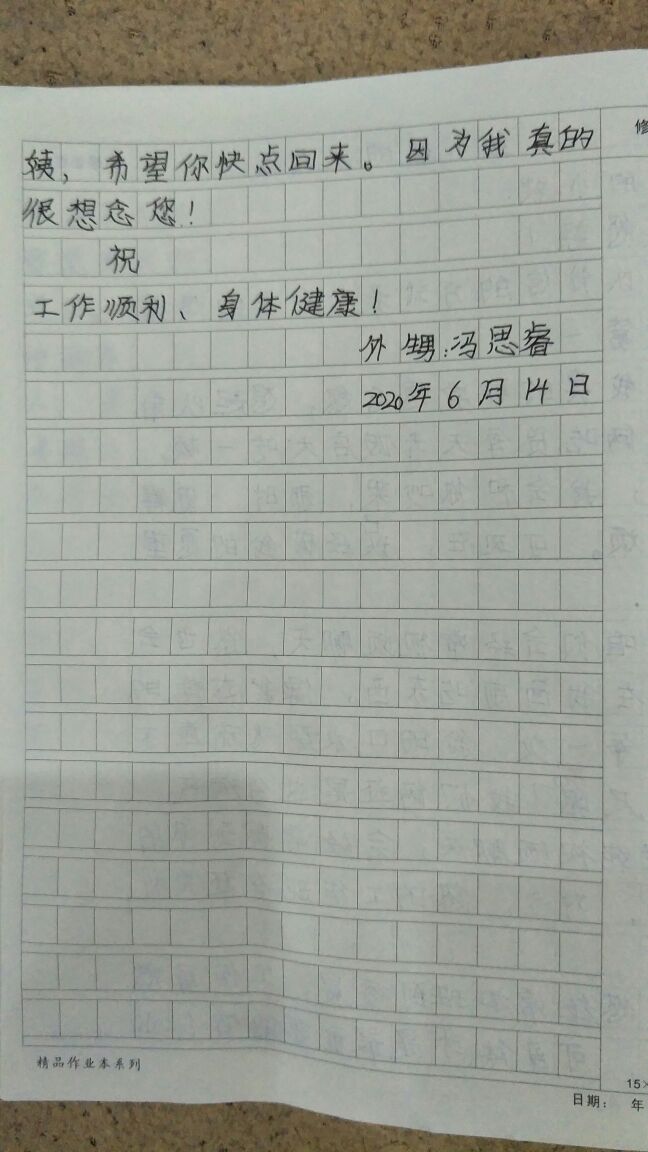 姨，希望你快点回来。因为我真的
很想念您！
祝
工作顺利、身体健康！
外甥：冯思睿
2020年6月14日
精品作业本系列
15×
日期： 年